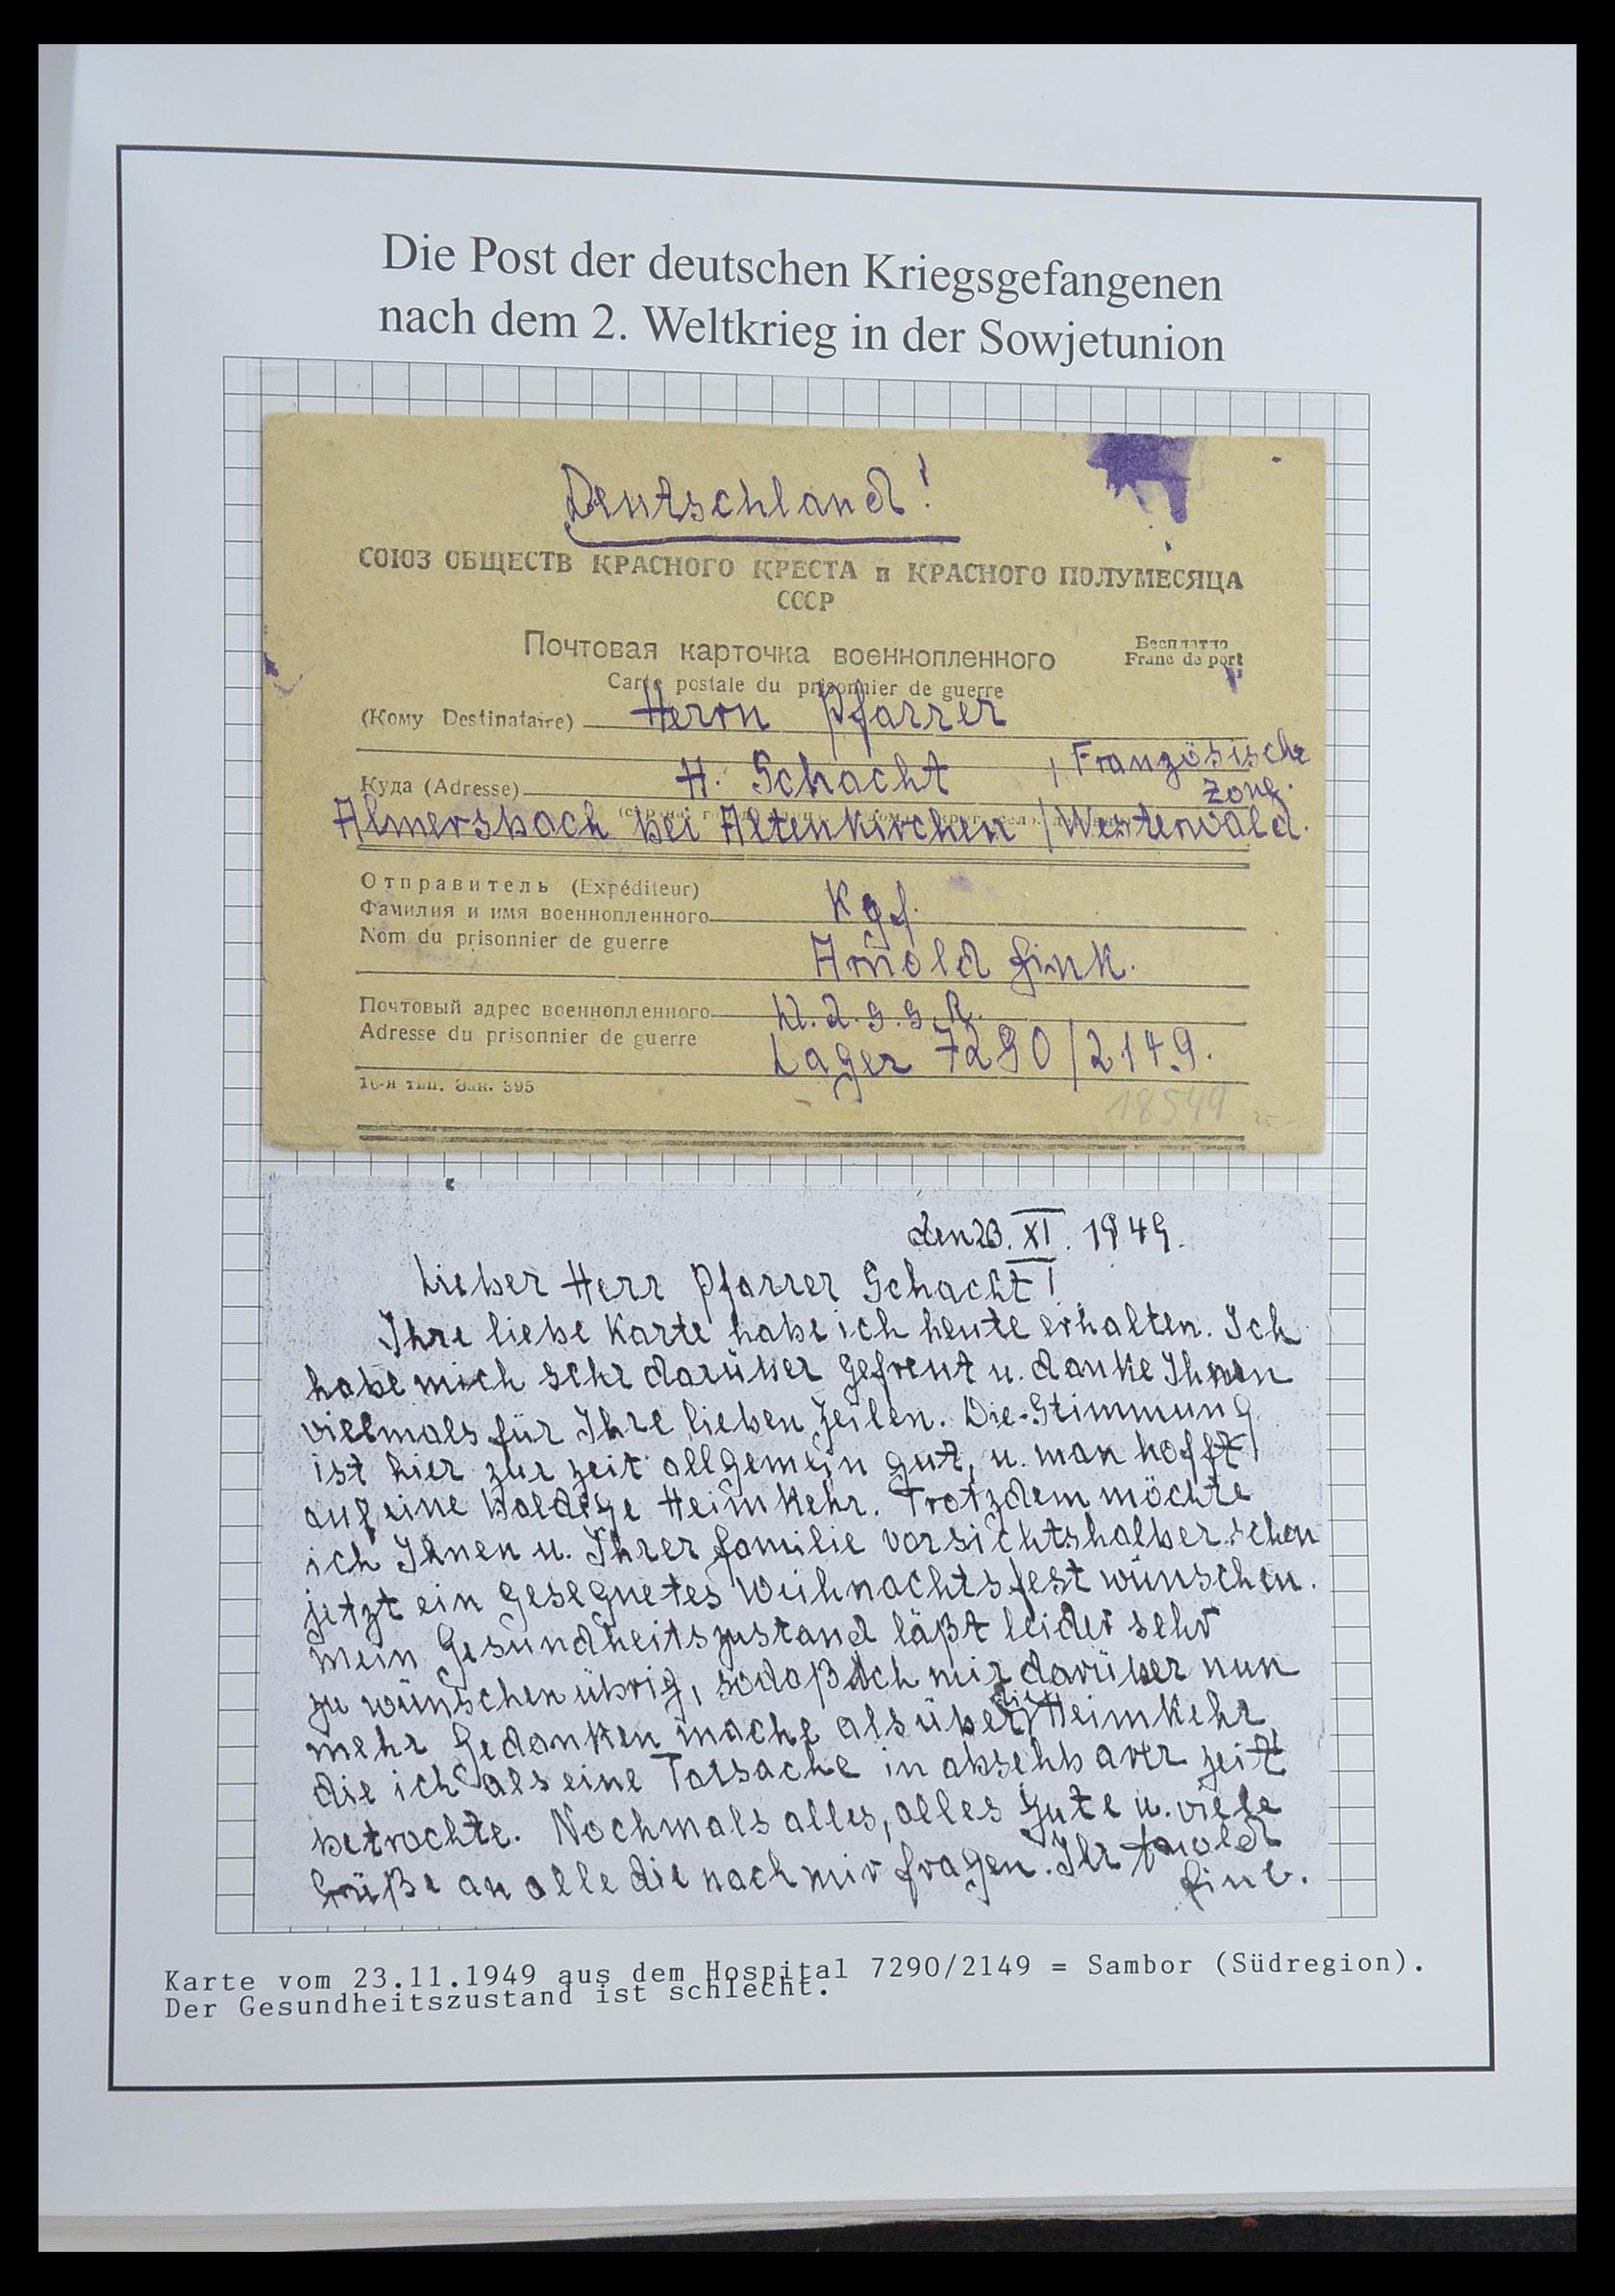 Die Post der deutschen Kriegsgefangenen
nach dem 2. Weltkrieg in der Sowjetunion
Deutschland!
СОЮЗ ОБЩЕСТВ КРАСНОГО КРЕСТА и КРАСНОГО ПОЛУМЕСЯЦА
СССР
Почтовая карточка военнопленного
Бесплатно
Franc de port
Carte postale du prisonnier de guerre
(Кому Destinataire) Herrn Pfarrer
H. Schacht , Französische
Куда (Adresse) Zone.
Almersbach bei Altenkirchen / Westerwald.
Отправитель (Expéditeur)
Фамилия и имя военнопленного Kgf.
Nom du prisonnier de guerre
Arnold Fink.
Почтовый адрес военнопленного U.d.S.S.R.
Adresse du prisonnier de guerre Lager 7290/2149.
10-я тип. Зак. 395
18549
den 23. XI. 1949.
Lieber Herr Pfarrer Schacht!
Ihre liebe Karte habe ich heute erhalten. Ich
habe mich sehr darüber gefreut u. danke Ihnen
vielmals für Ihre lieben Zeilen. Die Stimmung
ist hier zur Zeit allgemein gut, u. man hofft
auf eine baldige Heimkehr. Trotzdem möchte
ich Ihnen u. Ihrer Familie vorsichtshalber schon
jetzt ein gesegnetes Weihnachtsfest wünschen.
Mein Gesundheitszustand läßt leider sehr
zu wünschen übrig, sodaß ich mir darüber nun
mehr Gedanken mache als über die Heimkehr,
die ich als eine Tatsache in absehbarer Zeit
betrachte. Nochmals alles, alles Gute u. viele
Grüße an alle die nach mir fragen. Ihr Arnold
Fink.
Karte vom 23.11.1949 aus dem Hospital 7290/2149 = Sambor (Südregion).
Der Gesundheitszustand ist schlecht.